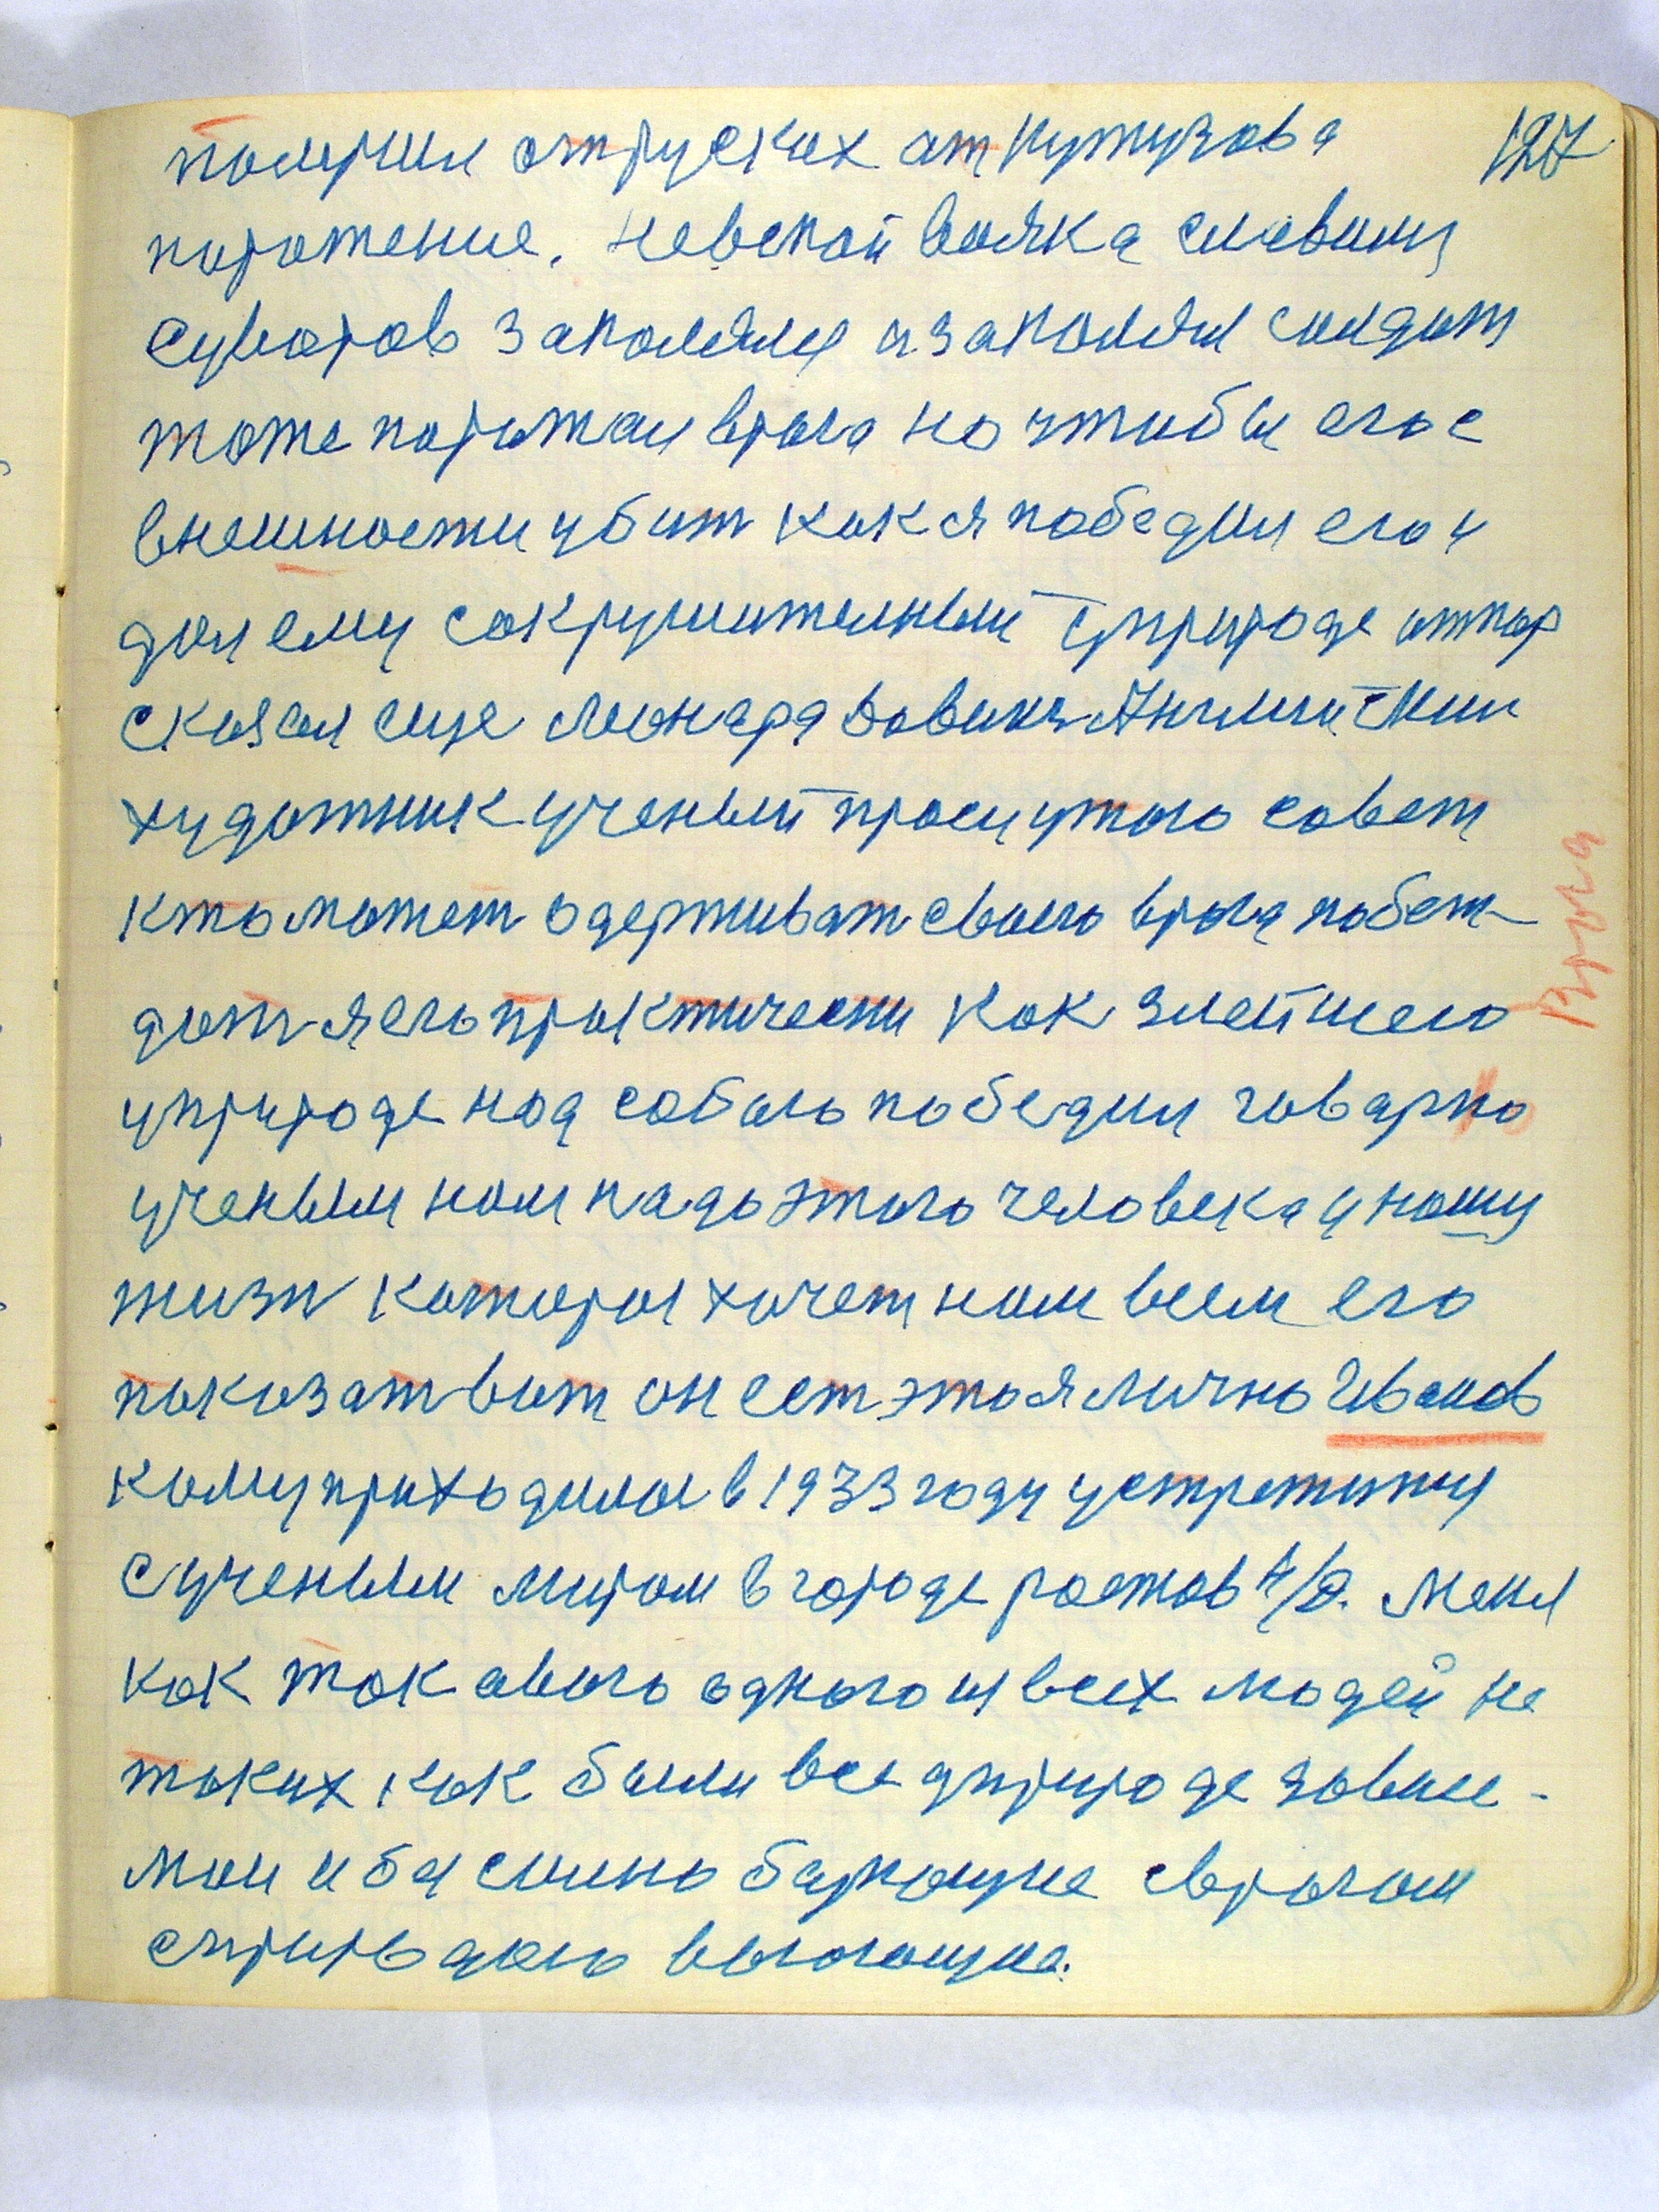 127
получил от руских ат Кутузова
поражение. Невской вояка славилис
Суворов закалялся и закалял солдат
тоже поражал врага но чтобы его с
внешности убит как я победил его и
дал ему сокрушителный у природе отпор
сказал еще Леонарда Давинч Английский
художник ученый прошу утого совет
кто может одерживат своего врага побеж-
дат я его практически как злейшего
у природе над собою победил говарю
ученым нам надо этого человека у нашу
жизн каторая хочет нам всем его
показат вот он ест это я лично Иванов
Кому приходилос в 1933 году устретится
с ученым миром в городе Ростов н/Д. Меня
как такавого одного из всех людей не
таких как были все у природе завис-
мои и бессилно барющие с врагом
с природаю воюющие.
Врага